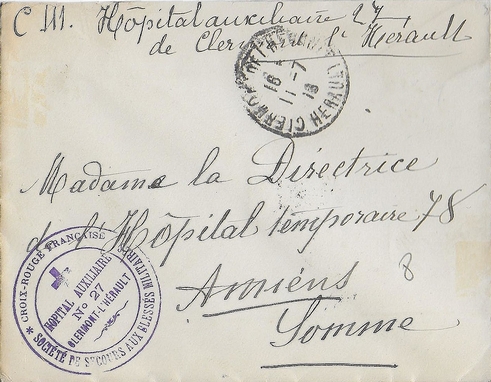 C 111. Hôpital auxiliaire 27
de Clermont l'Hérault
CLERMONT DE L'HERAULT HERAULT
16
11-7
18
Madame la Directrice
de l'Hôpital temporaire 78
Amiens
8
Somme
* CROIX-ROUGE FRANÇAISE * SOCIÉTÉ DE SECOURS AUX BLESSÉS MILITAIRES
HOPITAL AUXILIAIRE
No 27
CLERMONT-L'HÉRAULT